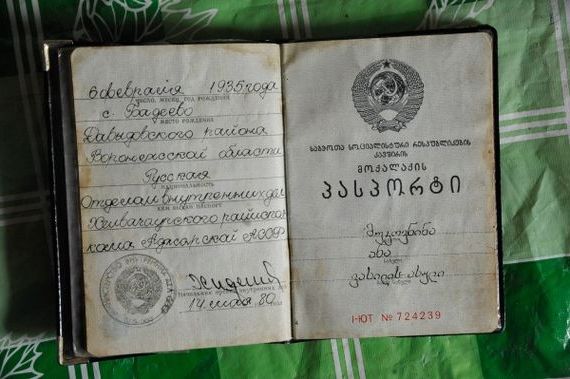 6 февраля 1935 года
число, месяц, год рождения
с. Бадеево
место рождения
Давыдовского района
Воронежской области
Русская
национальность
Отделом внутренних дел
кем выдан паспорт
Хелвачаурского райиспол-
кома Аджарской АССР
14 мая 80 года
საბჭოთა სოციალისტური რესპუბლიკების
კავშირის
მოქალაქის
პასპორტი
ანა
სახელი
ვასილის ასული
I-ЮТ № 724239